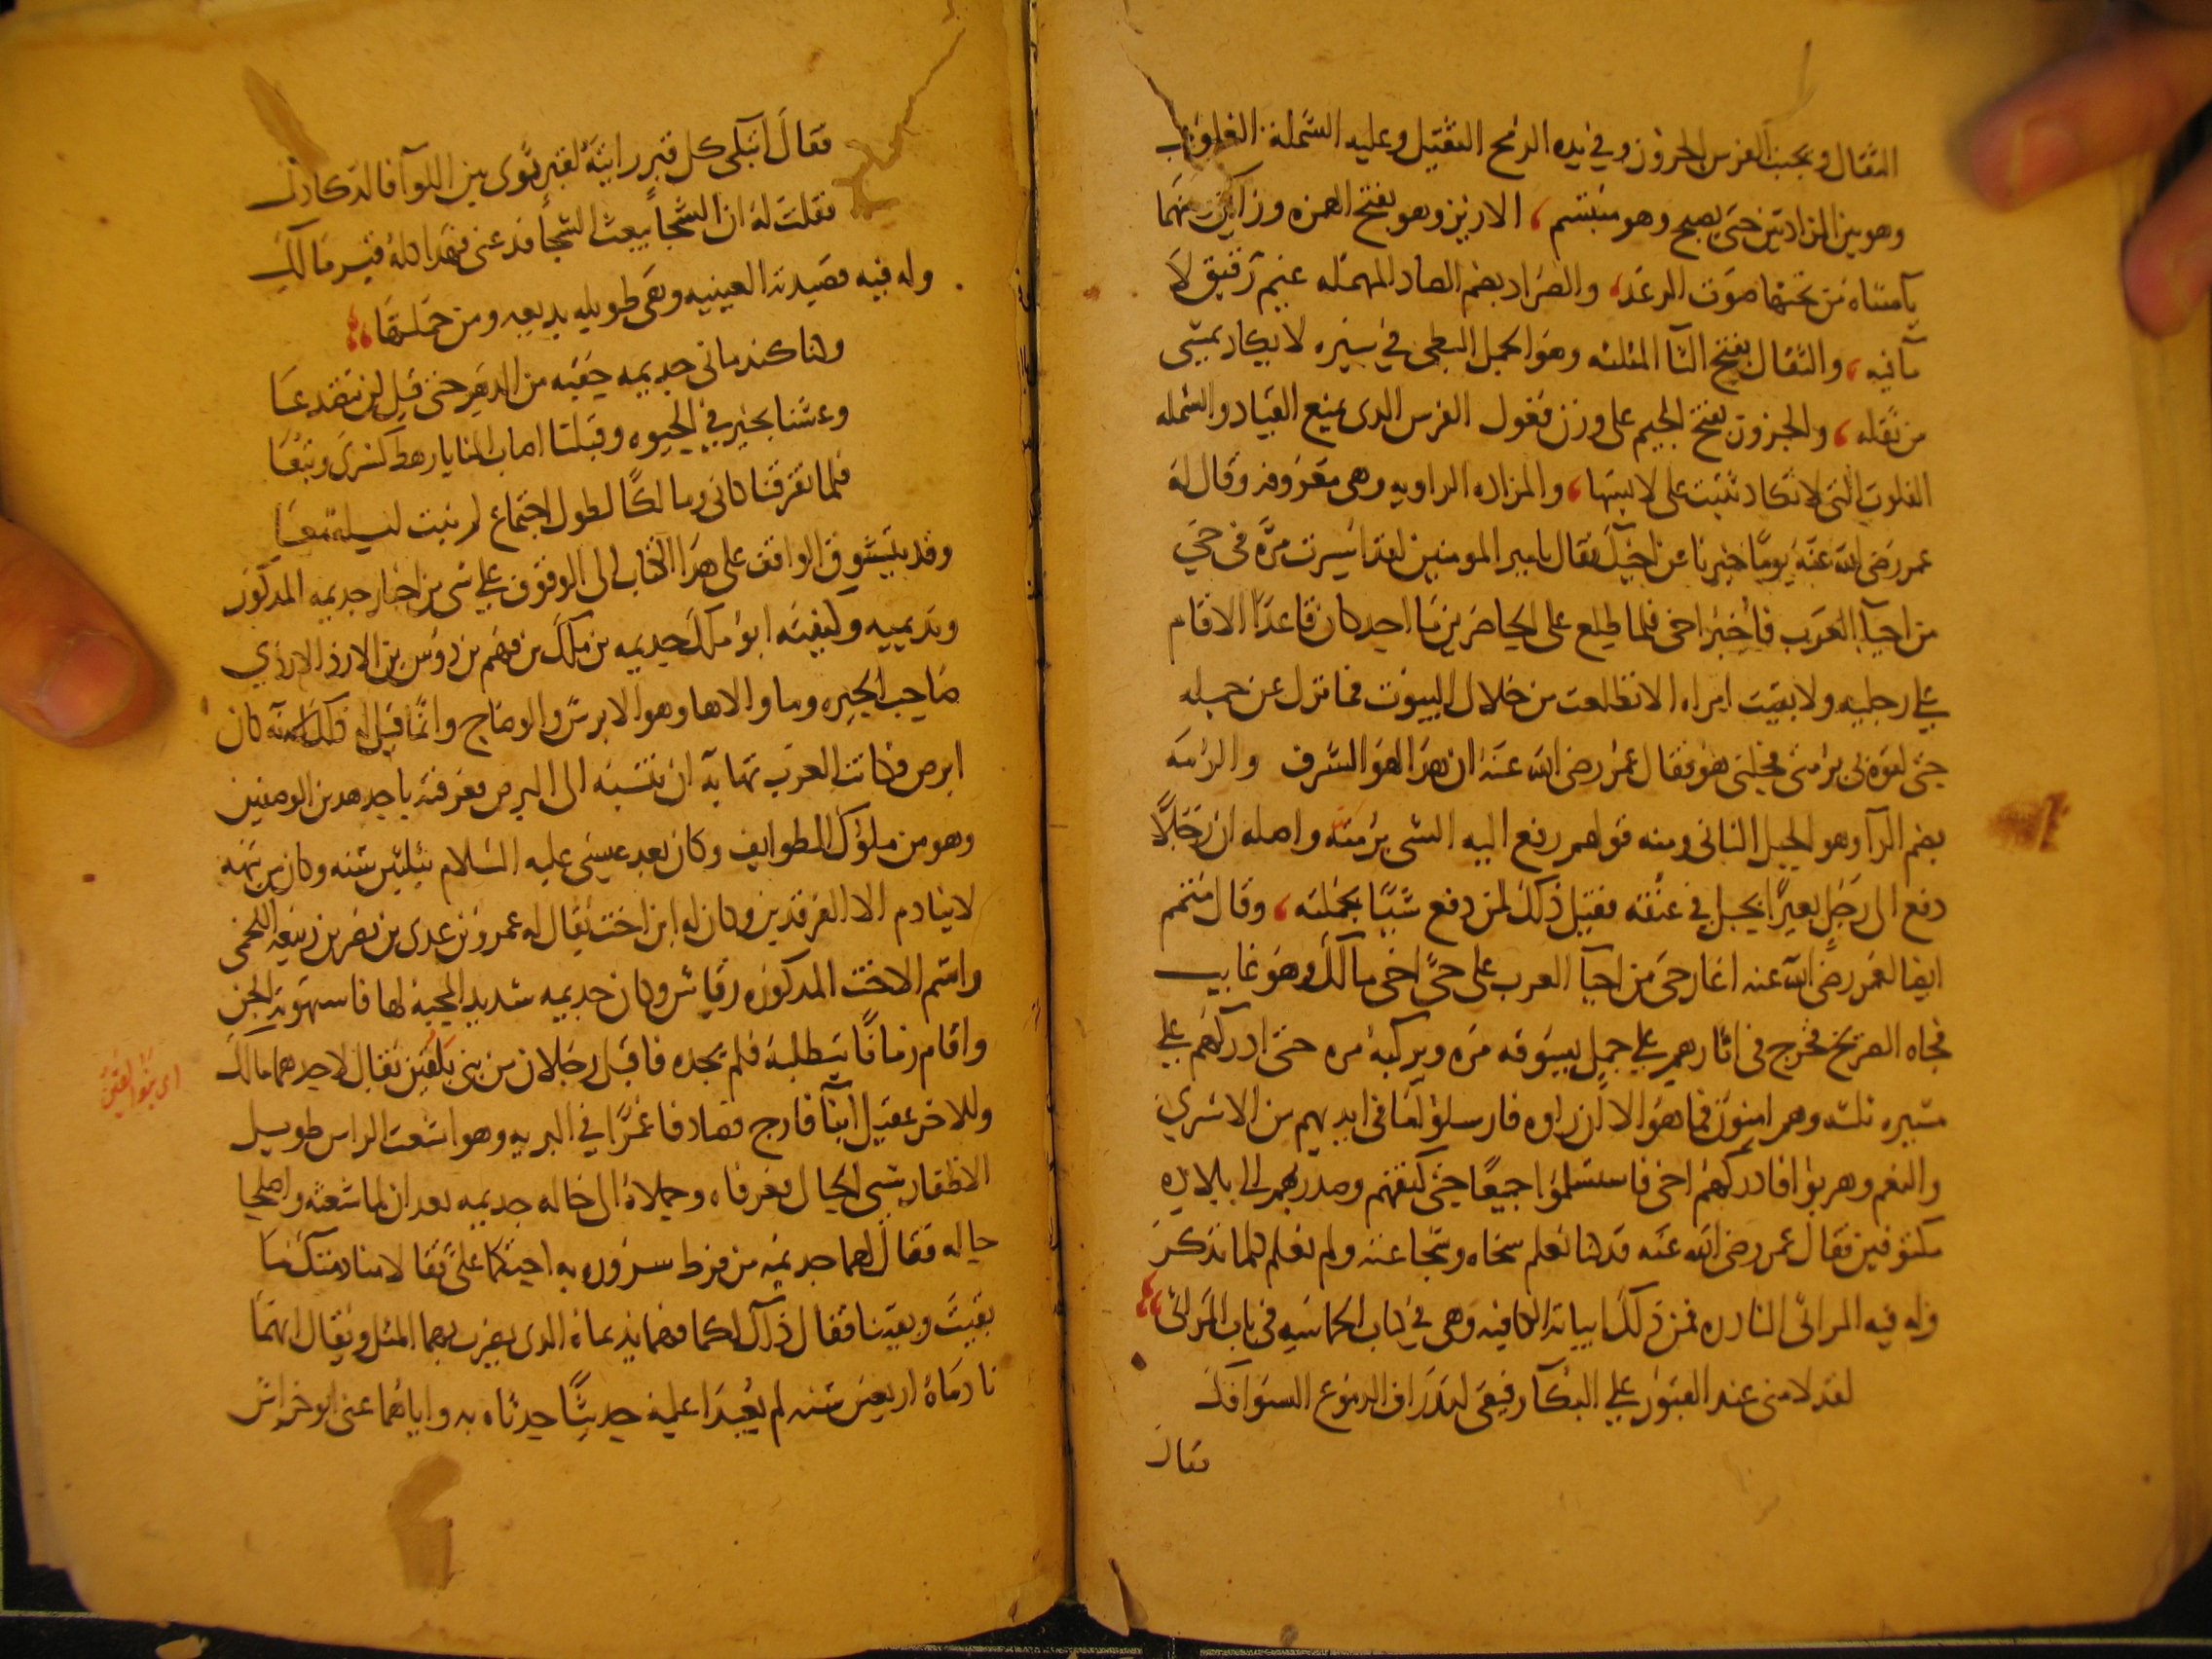 الثقال ويجنب الفرس الجرون وفي يده الرمح الثقيل وعليه الشملة الفلوت
وهو بين المزادتين حتى يصبح وهو متبسم، الاريز وهو بفتح الهمزه وزايين بينهما
يآ مثناه من تحتها صوت الرعد، والصراد بضم الصاد المهمله غيم رقيق لا
مآ فيه، والثقال بفتح الثا المثلثه وهو الجمل البطي في سيره لا يكاد يمشي
من ثقله، والجرون بفتح الجيم على وزن فعول الفرس الذى يمنع القياد والشمله
الفلوت التى لا تكاد تثبت على لابسها، والمزاده الراويه وهى معروفه وقال له
عمر رضى الله عنه يومًا خبرنا عن اخيك فقال يا امير المومنين لقد اسرت مرة فى حى
من احيآ العرب فاخبر اخى فلما طلع على الحاضرين ما احد كان قاعدًا الا قام
على رجليه ولا بقيت امراه الا تطلعت من خلال البيوت فما نزل عن جمله
حتى لقوه بى برمتى فحلنى هو فقال عمر رضى الله عنه ان هذا لهو الشرف والرمه
بضم الرآ وهو الحبل البالى ومنه قولهم دفع اليه الشى برمته واصله ان رجلًا
دفع الى رجل بعيرًا بحبل في عنقه فقيل ذلك لمن دفع شيًا بجملته، وقال متمم
ايضا لعمر رضى الله عنه اغار حى من احيآ العرب على حى اخى مالك وهو غايب
فجاه الصريخ فخرج فى اثارهم على جمل يسوقه مره ويركبه مره حتى ادركهم على
مسيره ثلثه وهم امنون فما هو الا ان راوه فارسلوا ما فى ايديهم من الاسرى
والنعم وهربوا فادركهم اخى فاستسلموا جميعًا حتى كتفهم وصدر بهم الى بلاده
مكتوفين فقال عمر رضى الله عنه قد كنا نعلم سخاه وشجاعته ولم نعلم كلما تذكر
وله فيه المراثى النادره فمن ذلك ابياته الكافيه وهى في كتاب الحماسيه فى باب المراثى
لقد لامنى عند القبور على البكا رفيقى لتذراف الدموع السوافك
فقال
فقال اتبكى كل قبر رايته لقبر ثوى بين اللوآ فالدكادك
فقلت له ان الشجا يبعث الشجا فدعنى فهذا كله قبر مالك
وله فيه قصيدته العينيه وهى طويله بديعه ومن جملتها
وكنا كندمانى جذيمه حقبه من الدهر حتى قيل لن نتصدعا
وعشنا بخير في الحيوه وقبلنا اصاب المنايا رهط كسرى وتبعا
فلما تفرقنا كانى ومالكًا لطول اجتماع لم نبت ليله معا
وقد يتشوق الواقف على هذا الكتاب الى الوقوف على شى من اخبار جذيمه المذكور
ونديميه وكنيته ابو ملك جذيمه بن ملك بن فهم بن دوس بن الازد الازدي
صاحب الحيره وما والاها وهو الابرش والوضاح وانما قيل له ذلك لانه كان
ابرص فكانت العرب تهابه ان تنسبه الى البرص فعرفته باحد هذين الوصفين
وهو من ملوك الطوايف وكان بعد عيسى عليه السلام بثلثين سنه وكان من تيهه
لا ينادم الا الفرقدين وكان له ابن اخت يقال له عمرو بن عدى بن نصر بن ربيعه اللخمى
واسم الاخت المذكوره رقاش وكان جذيمه شديد المحبه لها فاستهوته الجن
واقام زمانًا يتطلبه فلم يجده فاقبل رجلان من بنى بلقين يقال لاحدهما مالك
وللاخر عقيل ابنآ فارج فصادفا عمرًا في البريه وهو اشعث الراس طويل
الاظفار سى الحال فعرفاه وحملاه الى خاله جذيمه بعد ان لما شعثه واصلحا
حاله فقال لهما جذيمه من فرط سروره به احتكما على فقالا منادمتك ما
بقيت وبقينا فقال ذلك لكما فهما نديماه الذى يضرب بهما المثل ويقال انهما
نادماه اربعين سنه لم يعيدا عليه حديثًا حدثاه به واياهما عنى ابو خراش
اى بنو القين